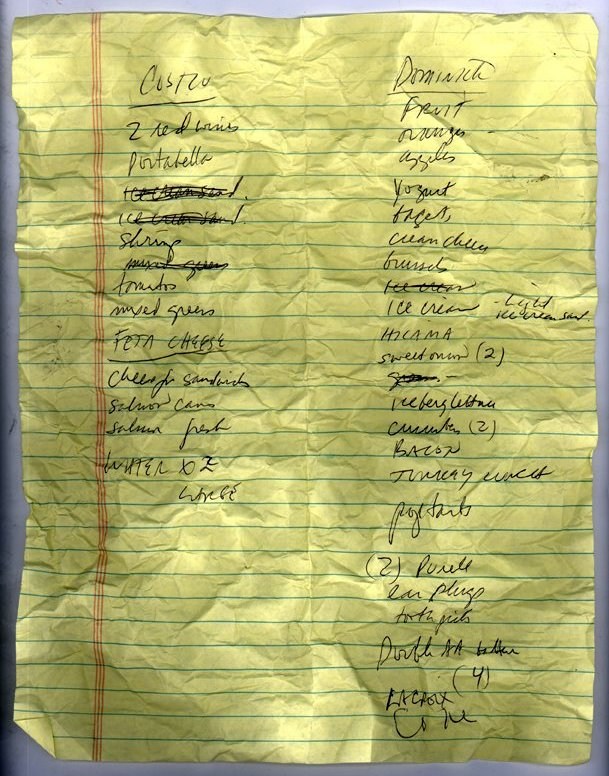 Costco
2 red wines
Portabella
ice cream sand.
ice cream sand.
Shrimp
mixed greens
tomatos
mixed greens
FETA CHEESE
cheese for sandwich
Salmon cans
Salmon fresh
WATER X 2
LARGE
Dominick
FRUIT
oranges -
apples
Yogurt
bagels
cream cheese
brussels
ice cream
ice cream - Light
ice cream sand.
HICAMA
sweet onion (2)
iceberg lettuce
cucumber (2)
BACON
TURKEY
pop tarts
(2) Purell
ear plugs
tooth picks
Double AA
(4)
LACROIX
Coke